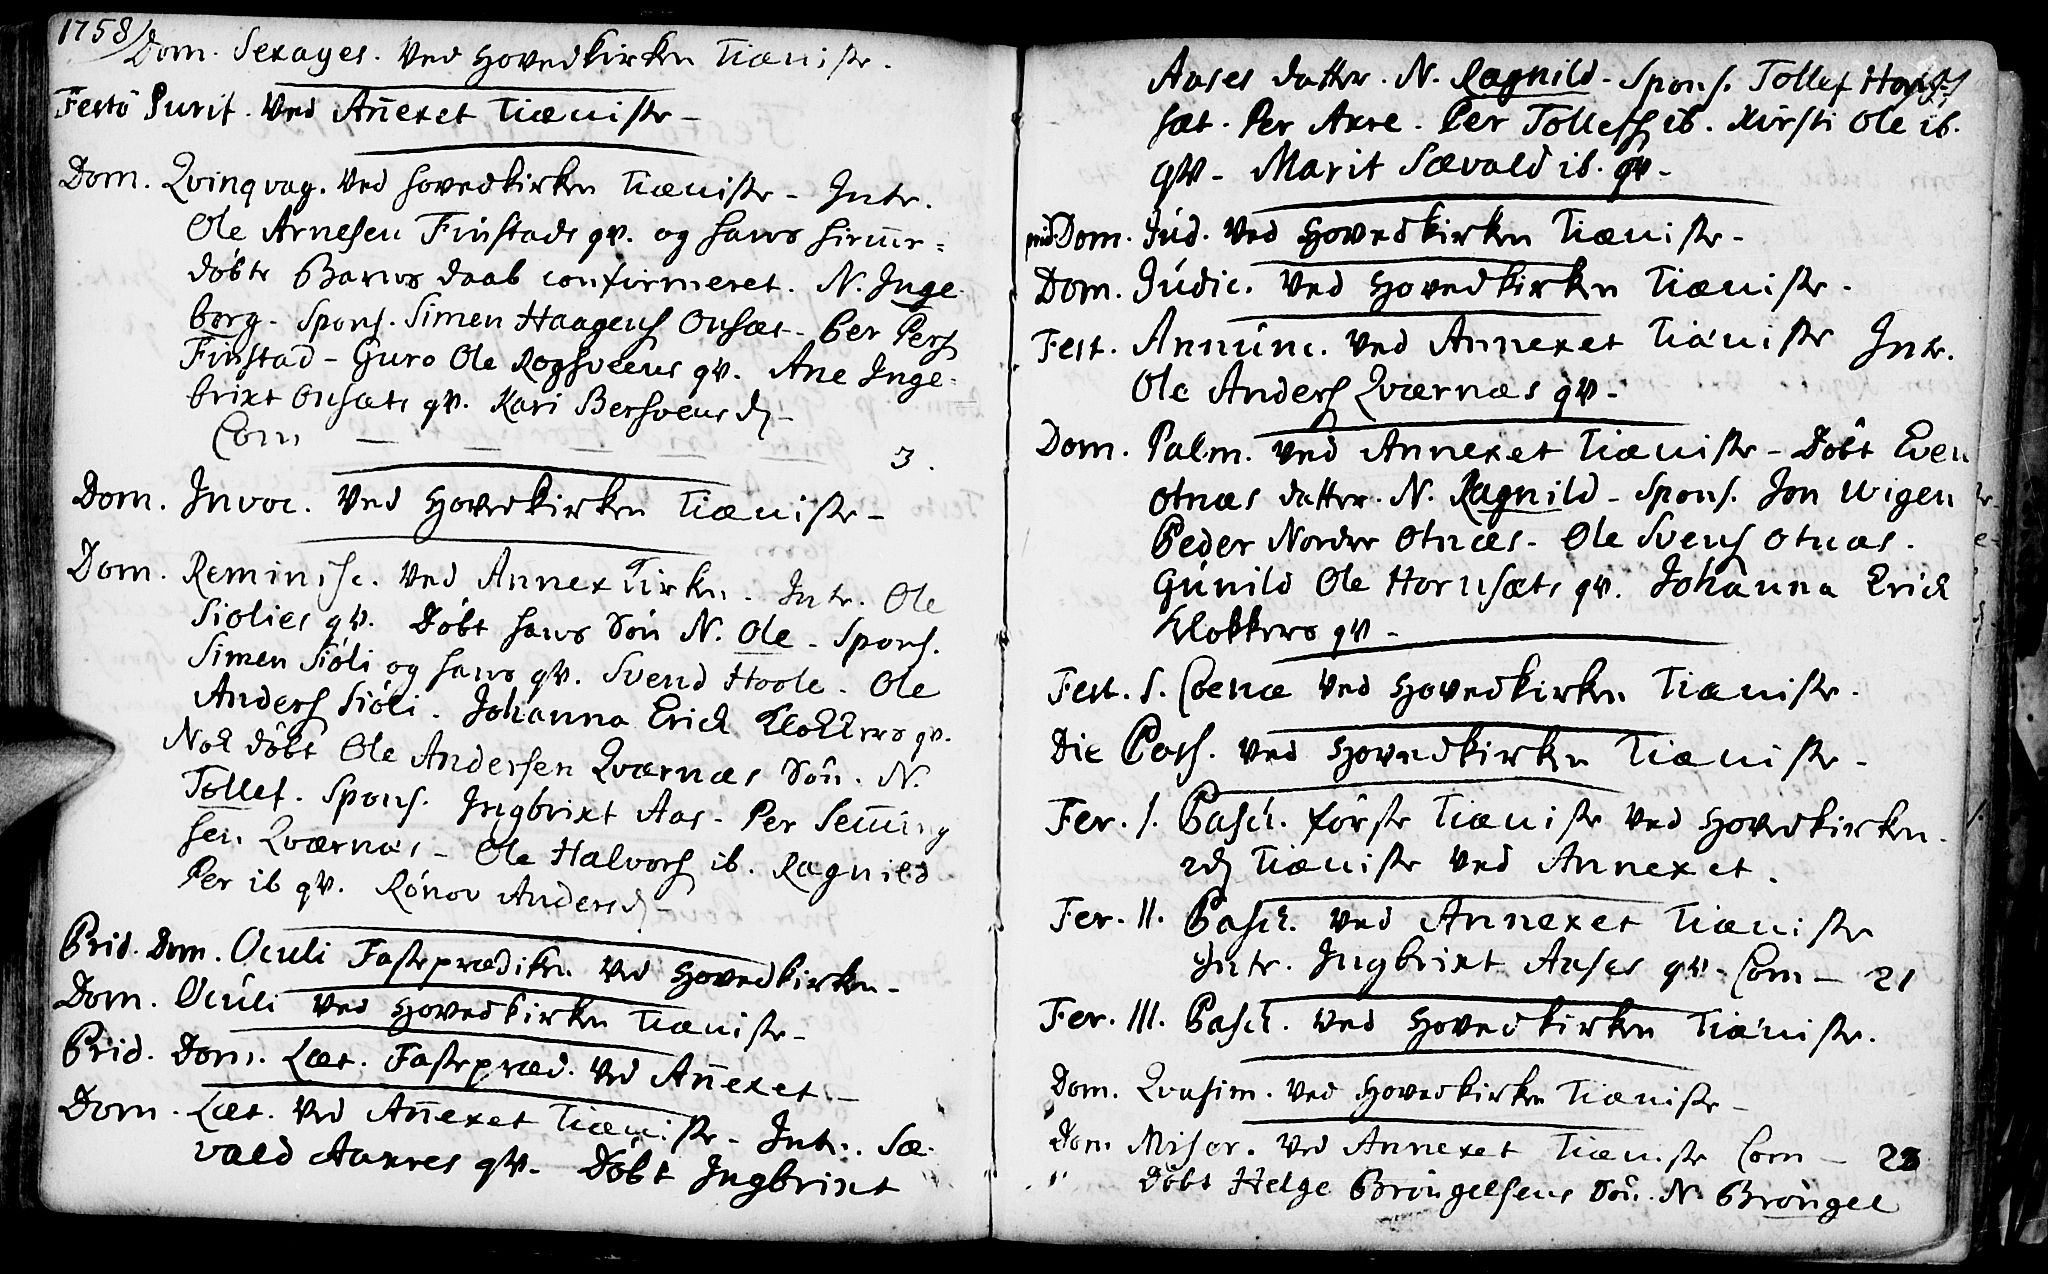 1758/
Dom. Sexages. ved Hovedkirken Tieniste.
Festo Purif. ved Añexet Tieniste -
Dom. Qvinqvag. ved Hovedkirken Tieniste - Intr.
Ole Arnesen Finstads qv. og hans hiem̅e=
døbte Barns daab confirmeret. N. Inge
borg. Spons. Simen Haagens Onsæt - Per Pers
Finstad - Guro Ole Rogsveens qv. Ane Inge=
brixt Onsæts qv. Kari Bersveens d
Com — — — — 3.
Dom. Invoc. ved Hovedkirken Tieniste -
Dom. Reminisc. ved Annex Kirken. Intr. Ole
Siolies qv. Døbt hans Søn N. Ole - Spons.
Simen Siøli og hans qv. Svend Hoole. Ole
Anders Siøli. Johanna Erick Klokkers qv.
Nok døbt Ole Andersen Qværnæs Søn. N.
Tollef. Spons. Ingbrixt Aas - Per Sem̅ing
sen Qværnæs - Ole Halvors ib. Ragnild
Per ib qv. Rønov Anders d -
Prid. Dom. Oculi Fasteprædiken ved Hovedkirken -
Dom. Oculi ved Hovedkirken Tieniste -
Prid. Dom. Læt. Fastepræd. ved Añexet. -
Dom. Læt. ved Añexet Tieniste - Intr. Sæ-
vald Aakres qv. Døbt Ingbrixt
Aases datter. N. Ragnild - Spons. Tollef
sæt. Per Axre. Per Tollefs ib. Kirsti Ole ib.
qv - Marit Sævald ib. qv -
prid. Dom. Jud. ved Hovedkirken Tieniste -
Dom. Judic. ved Hovedkirken Tieniste -
Fest. Annunc. ved Annexet Tieniste Intr.
Ole Anders Qværnæs qv -
Dom. Palm. ved Annexet Tieniste - Døbt Even
Otnæs datter. N. Ragnild - Spons. Jon Wigen
Peder Nordre Otnæs - Ole Svens Otnæs.
Gunild Ole Hornsæts qv. Johanna Erick
Klokkers qv -
Fest. S. Coenæ ved Hovedkirken Tieniste.
Die Pasch. ved Hovedkirken Tieniste -
Fer. I. Pasch. første Tieniste ved Hovedkirken.
2d Tieniste ved Annexet.
Fer. II. Pasch. ved Annexet Tieniste
Intr. Ingbrixt Aases qv - Com — 21
Fer. III. Pasch. ved Hovedkirken Tieniste.
Dom. Qvasim. ved Hovedkirken Tieniste -
Dom Miser. ved Annexet Tieniste Com — 28
Døbt Helge Brøngelsens Søn. N. Brøngel